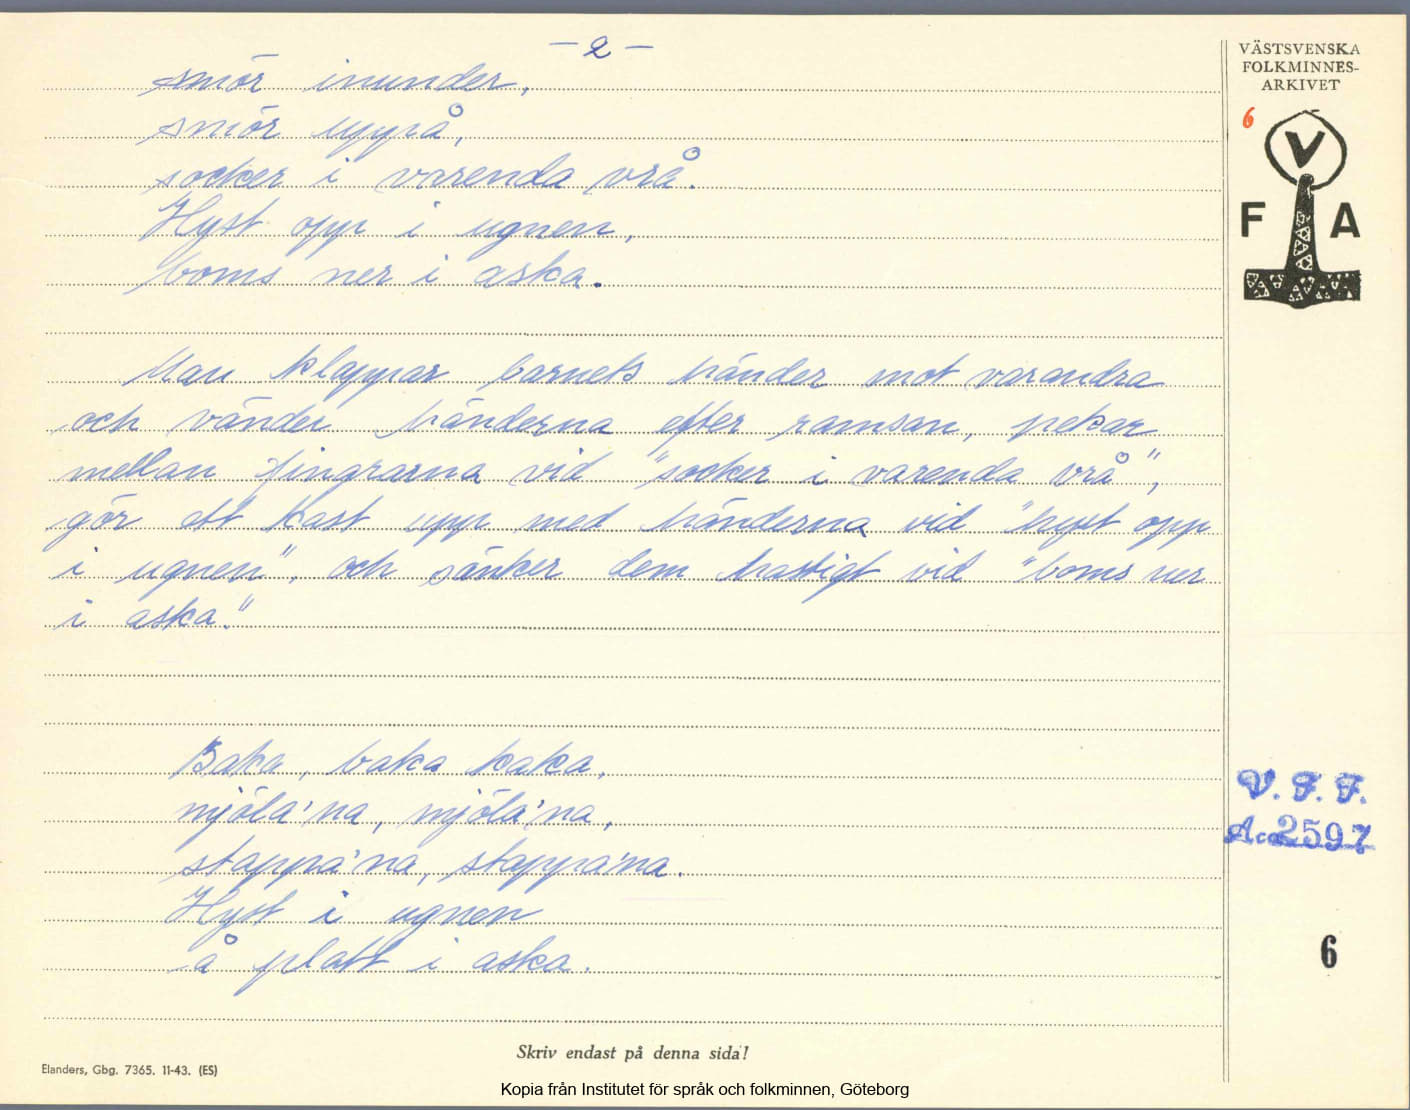 - 2 -
smör inunder,
smör uppå,
socker i varenda vrå.
Hyst opp i ugnen,
boms ner i aska.
Man klappar barnets händer mot varandra
och vänder händerna efter ramsan, pekar
mellan fingrarna vid "socker i varenda vrå",
gör ett kast upp med händerna vid "hyst opp
i ugnen", och sänker dem hastigt vid "boms ner
i aska."
Baka, baka kaka,
mjöla'na, mjöla'na,
stappa'na, stappa'na.
Hyst i ugnen
å platt i aska.
VÄSTSVENSKA
FOLKMINNES-
ARKIVET
6
V
F A
V. F. F.
Acc 2597
6
Skriv endast på denna sida!
Elanders, Gbg. 7365. 11-43. (ES)
Kopia från Institutet för språk och folkminnen, Göteborg